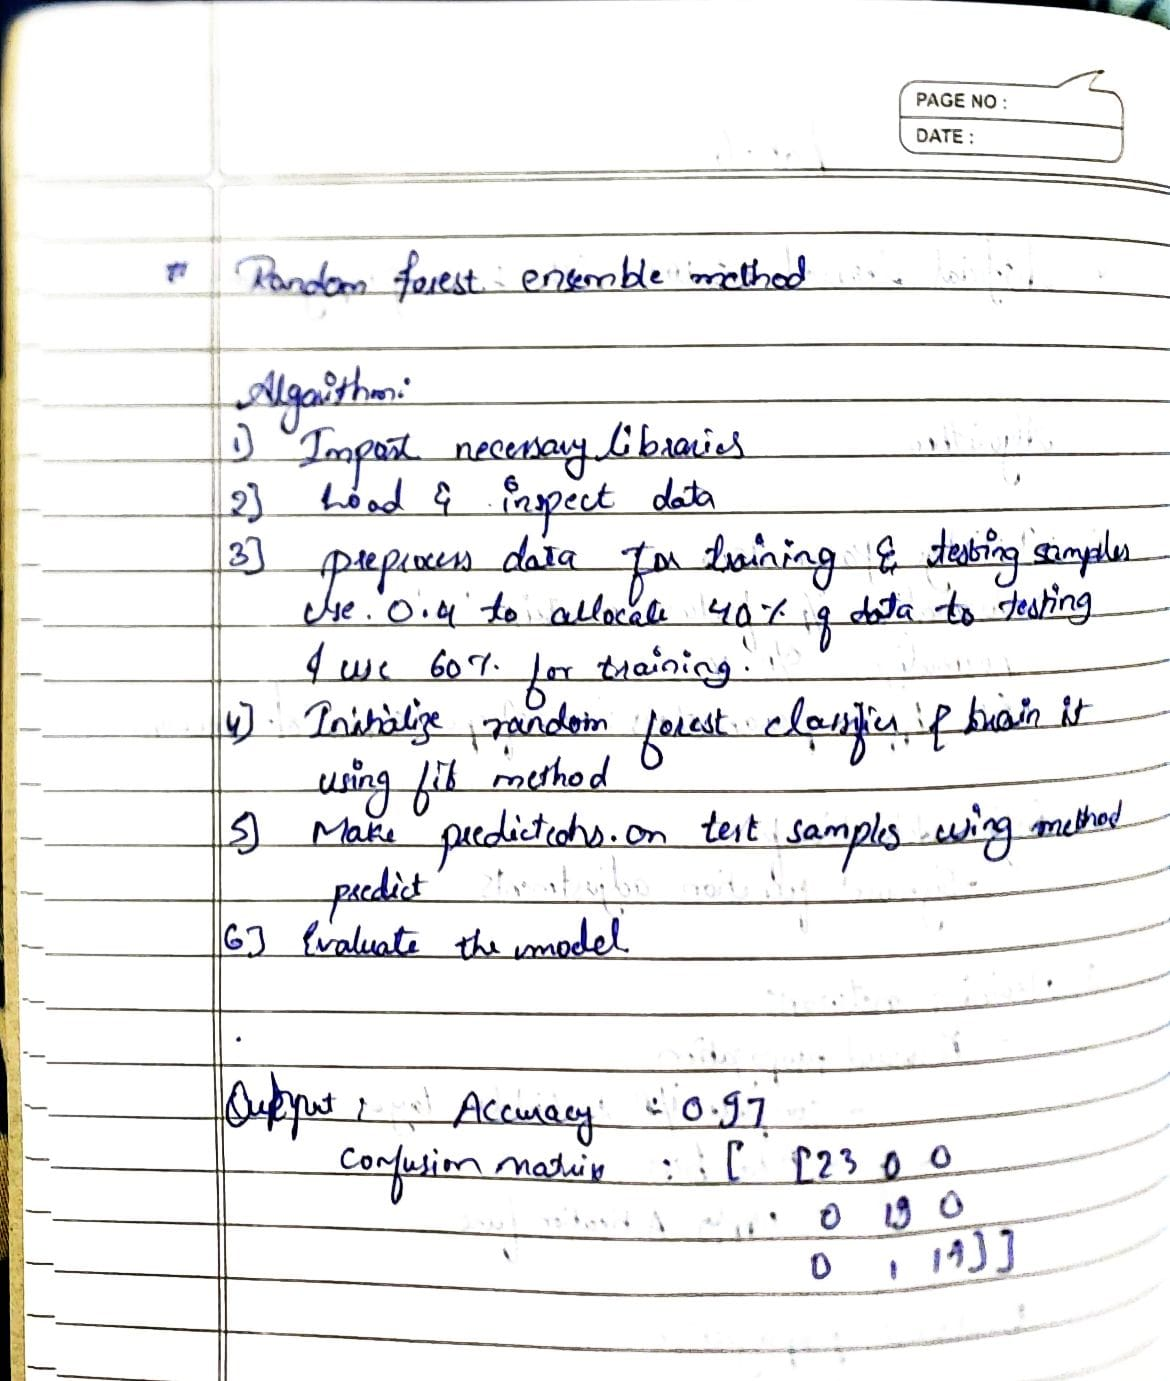 PAGE NO :
DATE :
Random forest ensemble method
Algorithm:
1) Import necessary libraries
2] Load & inspect data
3] preprocess data for training & testing samples
use 0.4 to allocate 40% of data to testing
& use 60% for training.
4] Initialize random forest classifier & train it
using fit method
5] Make predictions on test samples using method
predict
6] Evaluate the model
Output : Accuracy : 0.97
Confusion matrix : [ [23 0 0
0 19 0
0 1 ]]